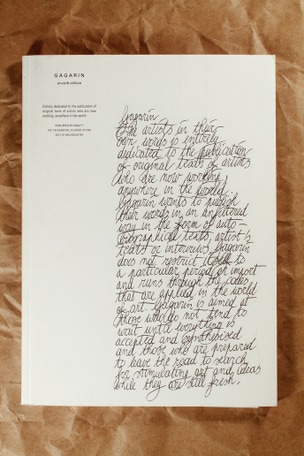 GAGARIN
Entirely dedicated to the publication of
original texts of artists who are now
working, anywhere in the world.
Gagarin
the artists in their
own words is entirely
dedicated to the publication
of original texts of artists
who are now working
anywhere in the world.
Gagarin wants to publish
their words in an unfiltered
way in the form of auto-
biographical texts, artist's
texts or interviews. Gagarin
does not restrict itself to
a particular period or import
and runs through the codes
that are applied in the world
of art. Gagarin is aimed at
those who do not tend to
wait until everything is
accepted and synthesised
and those who are prepared
to leave the road to search
for stimulating art and ideas
while they are still fresh.